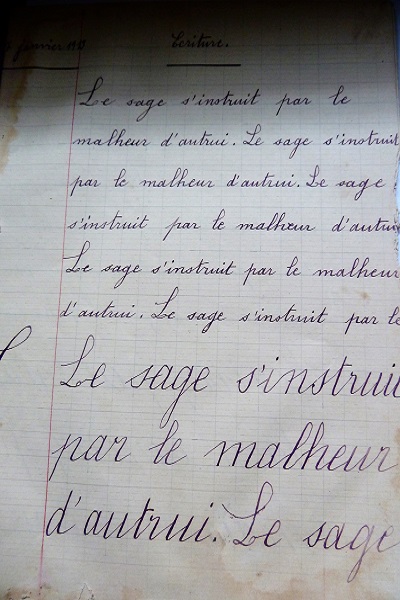 février Écriture.
Le sage s'instruit par le
malheur d'autrui. Le sage s'instruit
par le malheur d'autrui. Le sage
s'instruit par le malheur d'autrui
Le sage s'instruit par le malheur
d'autrui. Le sage s'instruit par le
Le sage s'instruit
par le malheur
d'autrui. Le sage